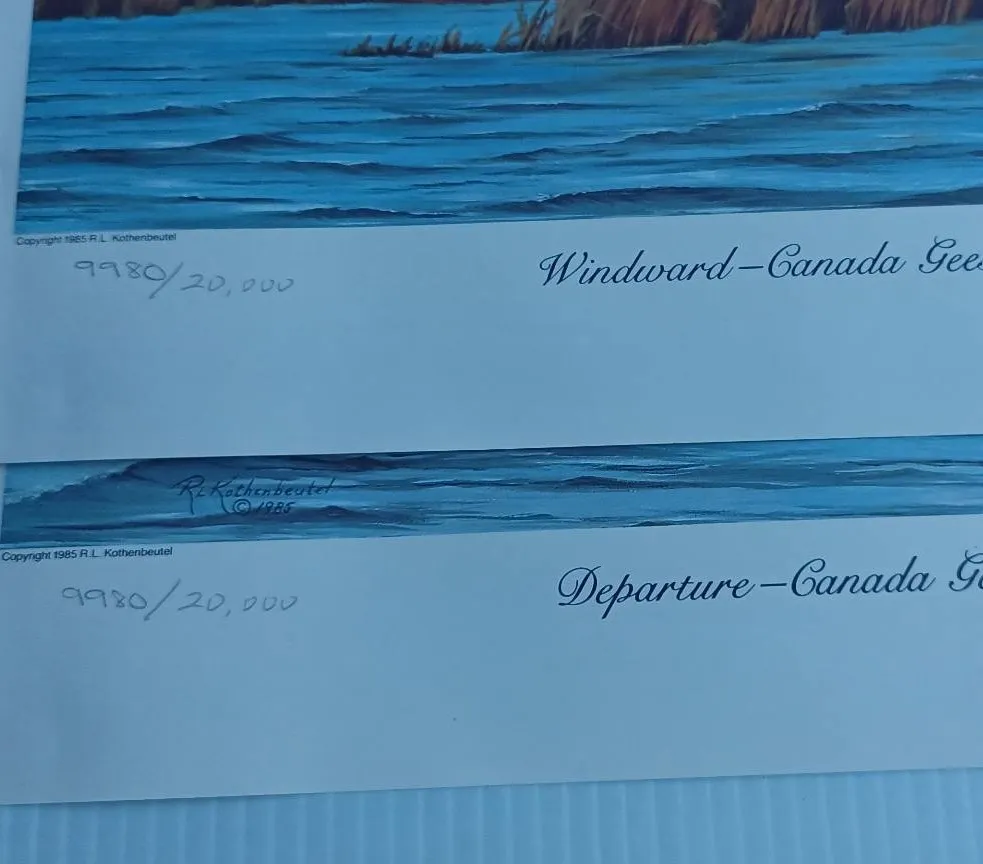 Copyright 1985 R.L. Kothenbeutel
9980/20,000
Windward – Canada Gees
RLKothenbeutel
© 1985
Copyright 1985 R.L. Kothenbeutel
9980/20,000
Departure – Canada G